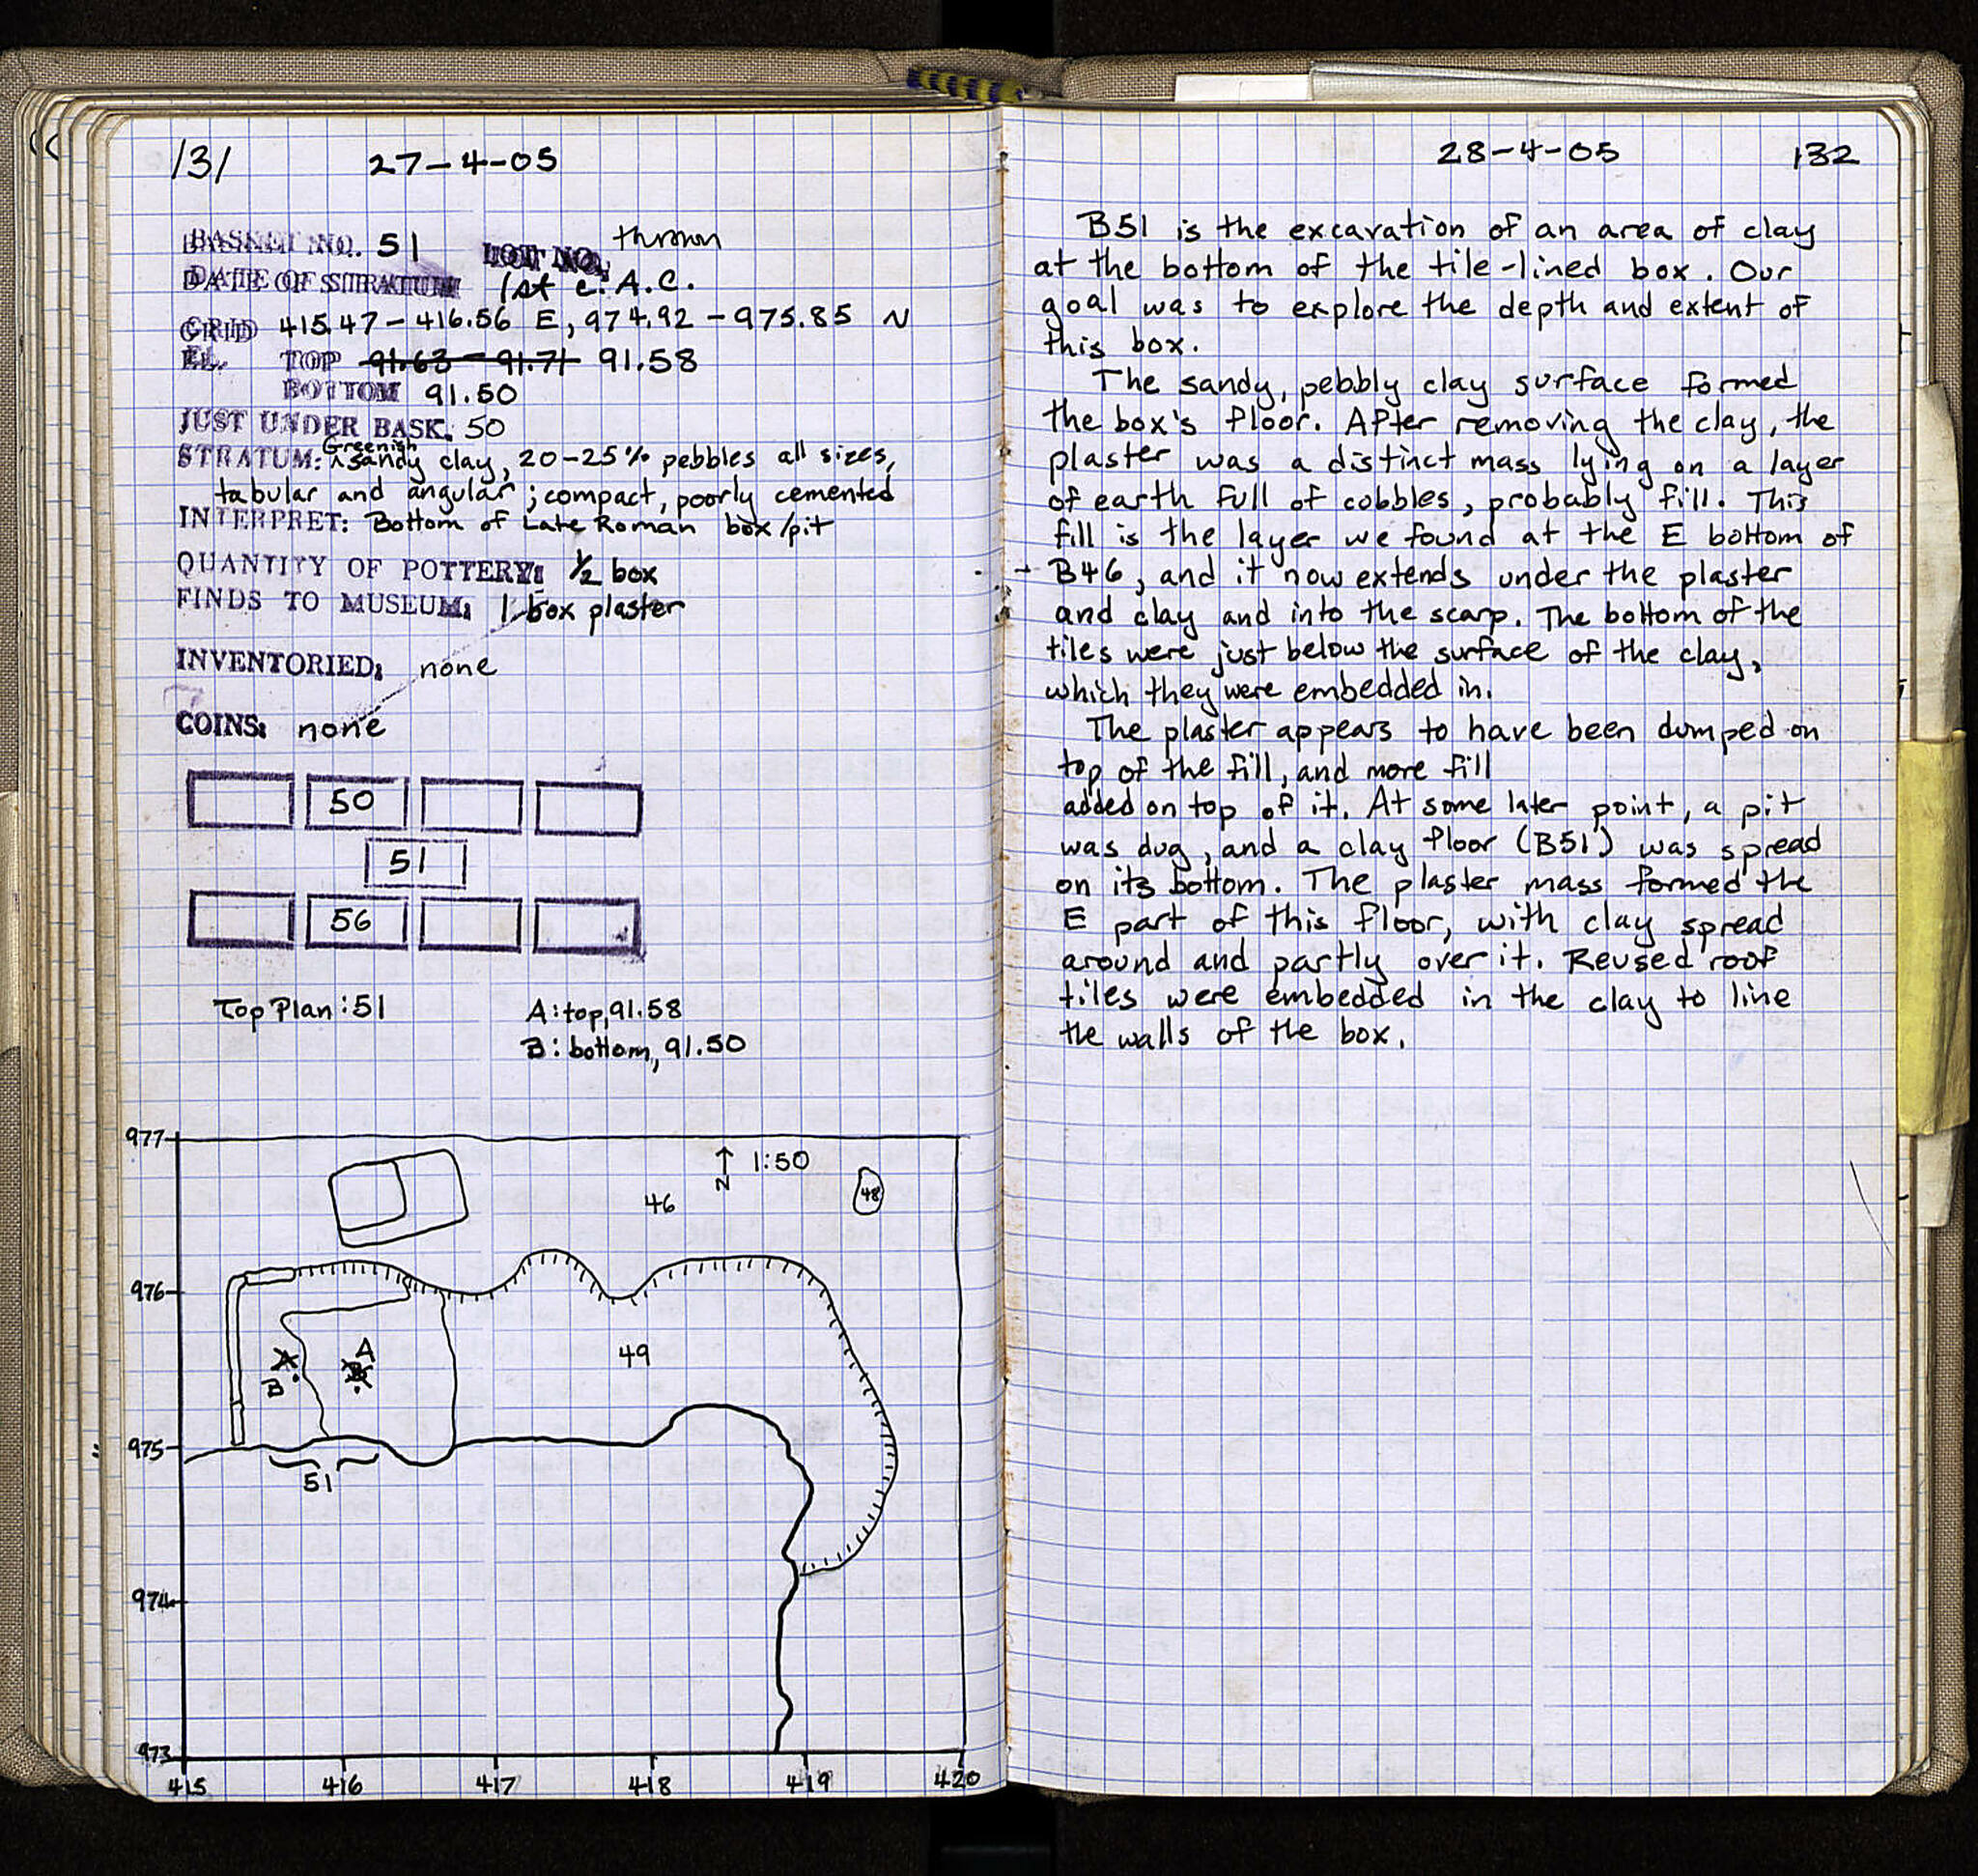 131 27-4-05
BASKET NO. 51 LOT NO. thrown
DATE OF STRATUM 1st c. A.C.
GRID 415.47-416.56 E, 974.92-975.85 N
EL. TOP 91.63-91.71 91.58
BOTTOM 91.50
JUST UNDER BASK. 50
STRATUM: Greenish ^sandy clay, 20-25% pebbles all sizes,
tabular and angular; compact, poorly cemented
INTERPRET: Bottom of Late Roman box/pit
QUANTITY OF POTTERY: 1/2 box
FINDS TO MUSEUM: 1 box plaster
INVENTORIED: none
COINS: none
50
51
56
Top Plan: 51 A: top, 91.58
B: bottom, 91.50
977
↑ 1:50
N
46 48
976
A A
B B
49
975
51
974
973
415 416 417 418 419 420
28-4-05 132
B51 is the excavation of an area of clay
at the bottom of the tile-lined box. Our
goal was to explore the depth and extent of
this box.
The sandy, pebbly clay surface formed
the box's floor. After removing the clay, the
plaster was a distinct mass lying on a layer
of earth full of cobbles, probably fill. This
fill is the layer we found at the E bottom of
B46, and it now extends under the plaster
and clay and into the scarp. The bottom of the
tiles were just below the surface of the clay,
which they were embedded in.
The plaster appears to have been dumped on
top of the fill, and more fill
added on top of it. At some later point, a pit
was dug, and a clay floor (B51) was spread
on its bottom. The plaster mass formed the
E part of this floor, with clay spread
around and partly over it. Reused roof
tiles were embedded in the clay to line
the walls of the box.